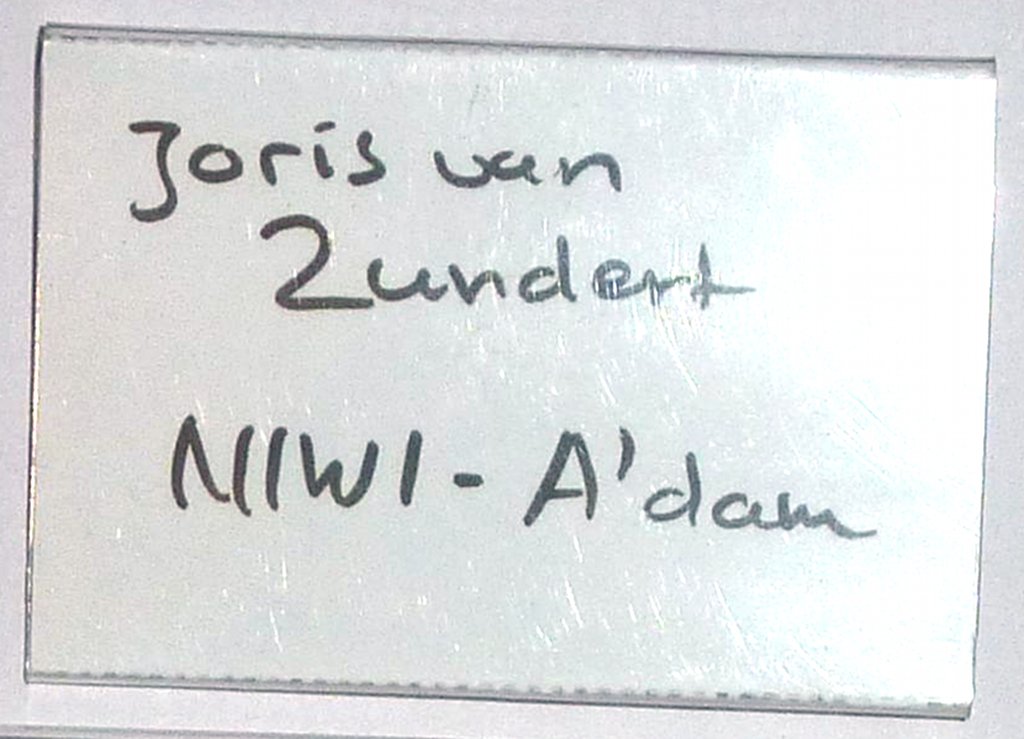 Joris van
Zundert
NIWI - A'dam